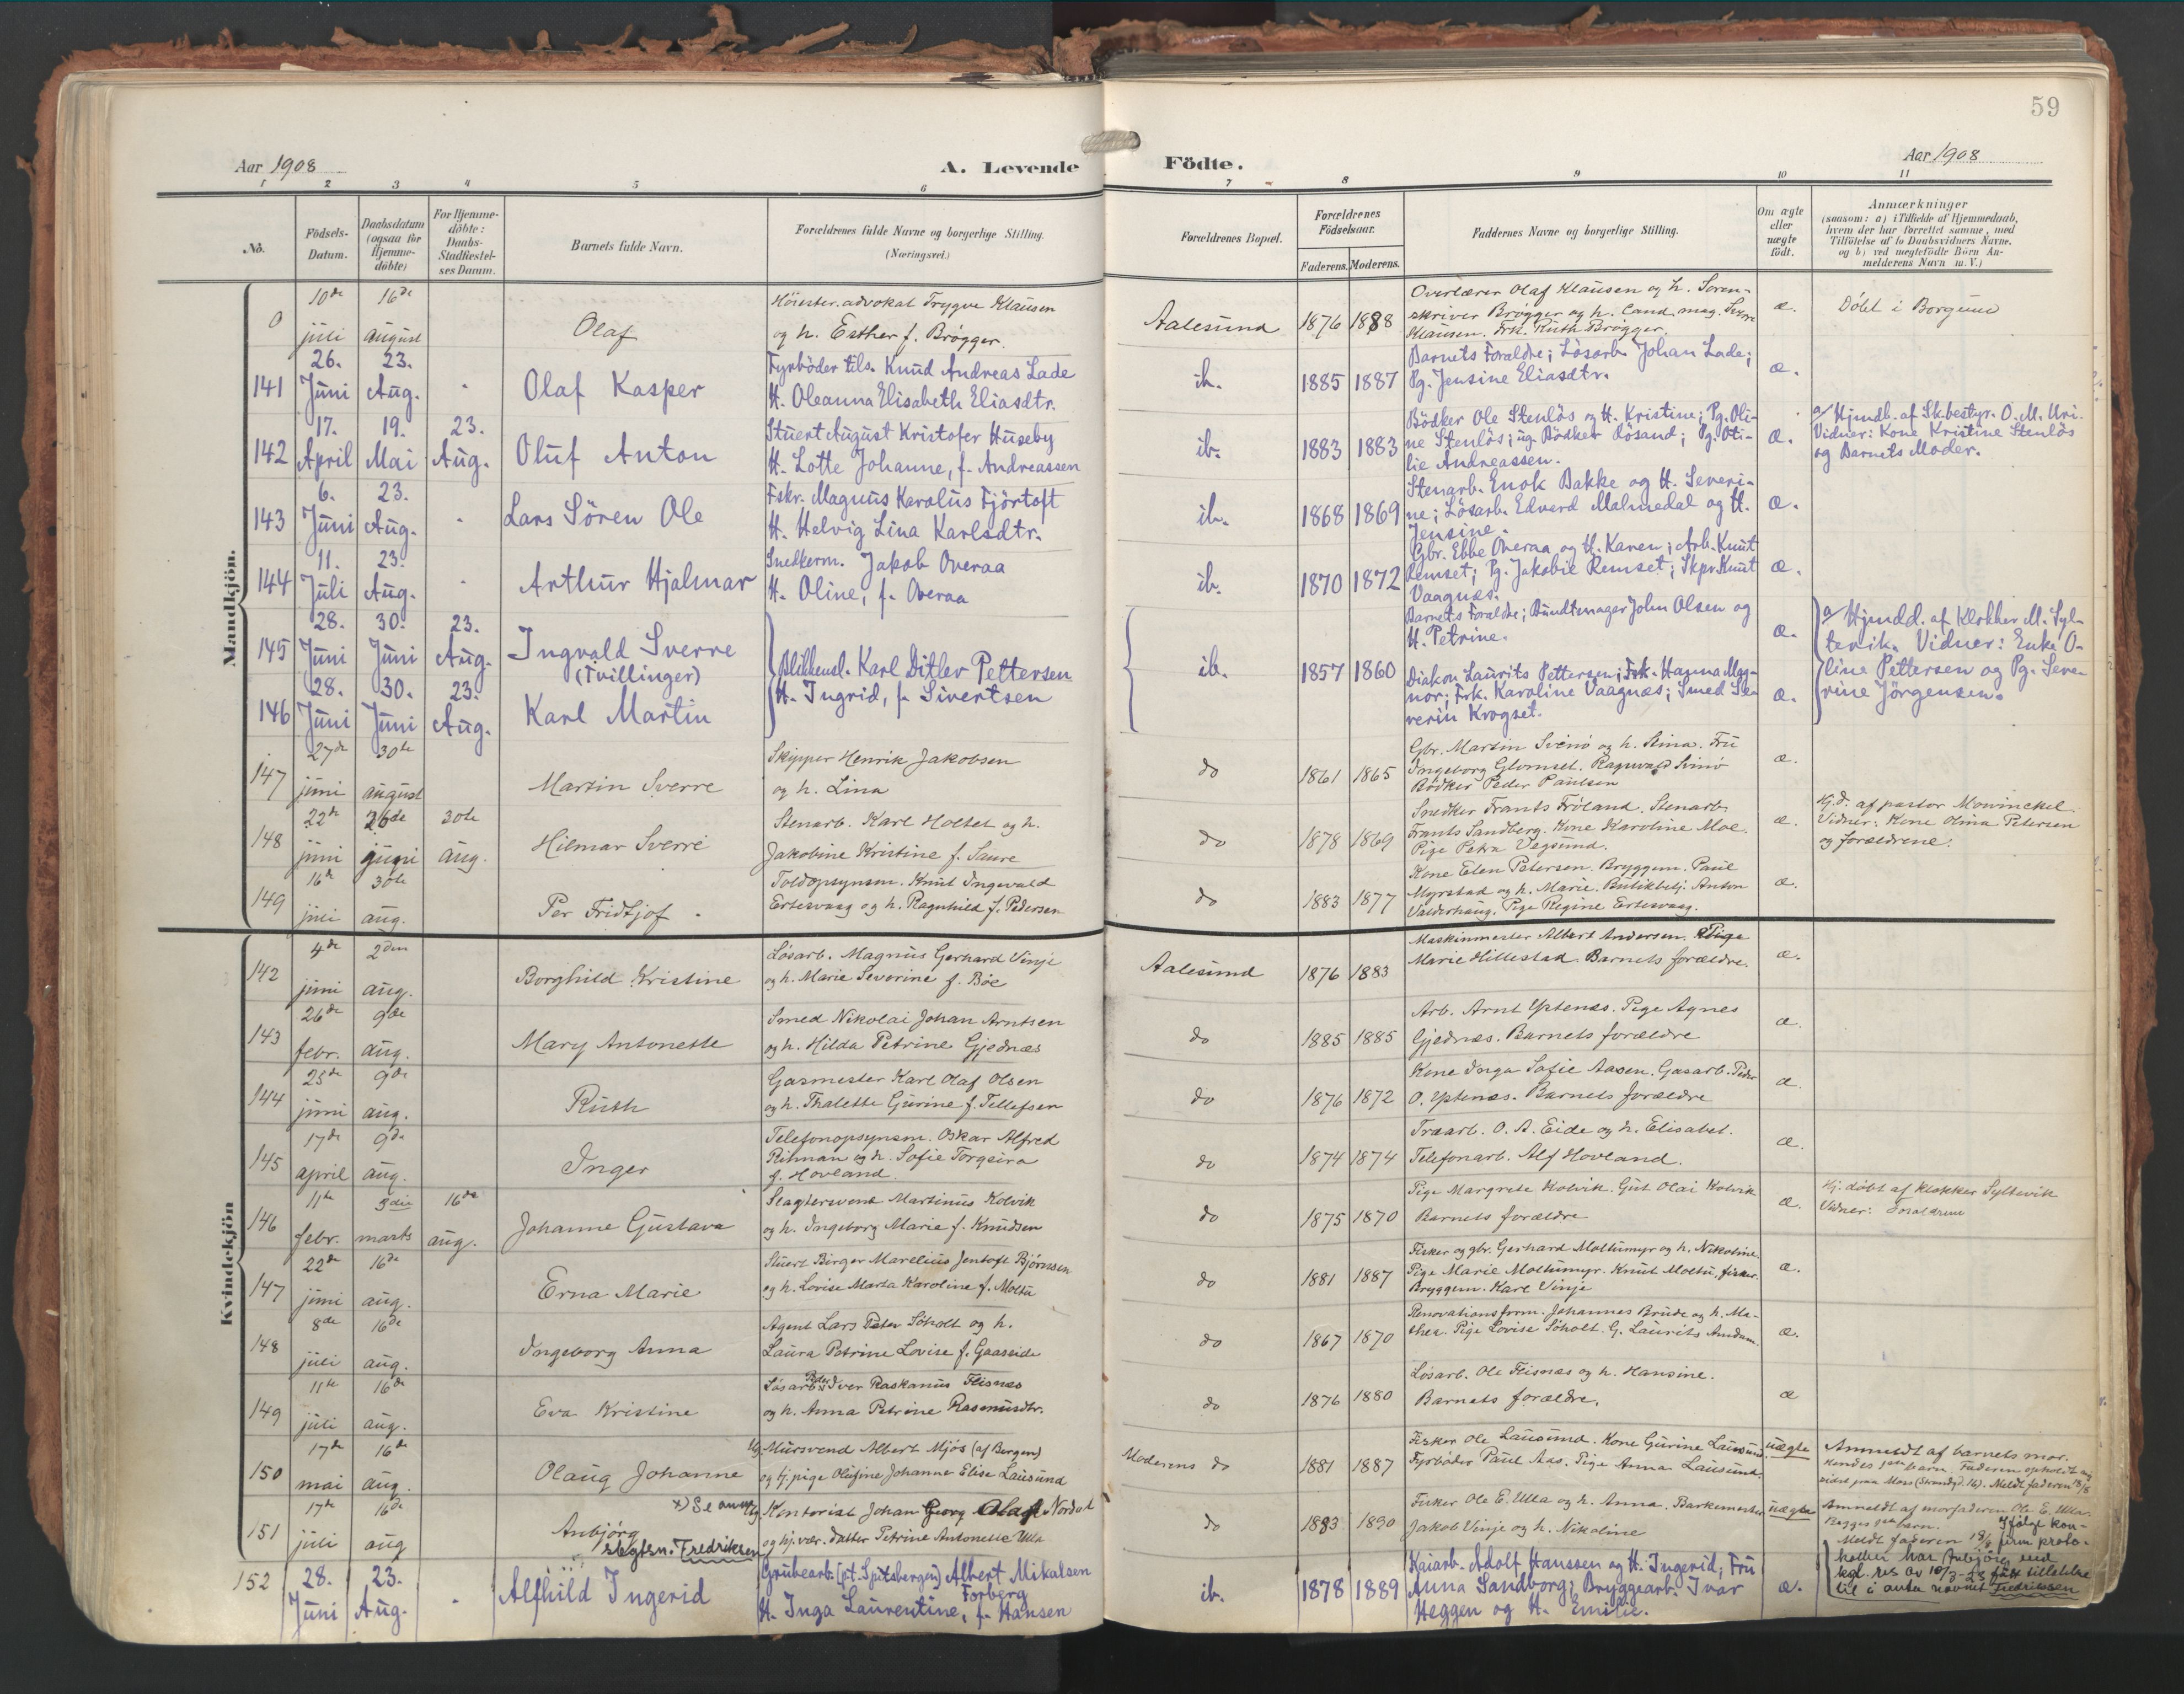 59
Aar 1908
A. Levende
Födte.
Aar 1908
1 2 3 4 5 6 7 8 9 10 11
No.
Födsels-
Datum.
Daabsdatum
(ogsaa for
Hjemme-
döbte)
For Hjemme-
döbte:
Daabs-
Stadfæstel-
ses Datum.
Barnets fulde Navn.
Forældrenes fulde Navne og borgerlige Stilling.
(Næringsvei.)
Forældrenes Bopæl.
Forældrenes
Födselsaar.
Faderens. Moderens.
Faddernes Navne og borgerlige Stilling.
Om ægte
eller
uægte
født.
Anmærkninger
(saasom: a) i Tilfælde af Hjemmedaab,
hvem der har forrettet samme, med
Tilföielse af to Daabsvidners Navne.
og b) ved uægtefödte Börn An-
melderens Navn m. V.)
Mandkjön.
0 10de juli 16de august
Olaf
Höiester. advokat Trygve Klausen
og h. Esther f. Brøgger.
Aalesund 1876 1888
Overlærer Olaf Klausen og h. Soren-
skriver Brøgger og h. Cand. mag. Sverre
Klausen. Frk. Ruth Brøgger.
æ.
Döbt i Borgund
141 26. Juni 23. Aug. -
Olaf Kasper
Fyrböder tils. Knud Andreas Lade
H. Oleanna Elisabeth Eliasdtr.
ib. 1885 1887
Barnets Foraldre; Lösarb. Johan Lade;
Pg. Jensine Eliasdtr.
æ.
142 17. April 19. Mai 23. Aug.
Oluf Anton
Stuert August Kristofer Huseby
H. Lotte Johanne, f. Andreassen
ib. 1883 1883
Bödker Ole Stenlös og H. Kristine; Pg. Oli-
ne Stenlös; ug. Bödker Rösand; Pg. Oti-
lie Andreassen.
æ.
a/ Hjmdb. af Sk.bestyr. O. M. Uri.
Vidner: Kone Kristine Stenlös
og Barnets Moder.
143 6. Juni 23. Aug. -
Lars Sören Ole
Fskr. Magnus Karolus Fjörtoft
H. Helvig Lina Karlsdtr.
ib. 1868 1869
Stenarb. Enok Bakke og H. Severi-
ne; Lösarb. Edvard Malmedal og H.
Jensine.
æ.
144 11. Juli 23. Aug. -
Arthur Hjalmar
Snedkerm. Jakob Overaa
H. Oline, f. Overaa
ib. 1870 1872
Gbr. Ebbe Overaa og H. Karen; Arb. Knut
Remset; Pg. Jakobie Remset; Skpr. Knut
Vaagnæs.
æ.
145 28. Juni 30. Juni 23. Aug.
Ingvald Sverre
(Tvillinger)
146 28. Juni 30. Juni 23. Aug.
Karl Martin
Blikkensl. Karl Ditlev Pettersen
H. Ingrid, f. Sivertsen
ib. 1857 1860
Barnets Foraldre; Bundtmager John Olsen og
H. Petrine.
æ.
Diakon Laurits Pettersen; Frk. Hanna Mag-
nor; Frk. Karoline Vaagnæs; Smed Se-
verin Krogset.
æ.
a/ Hjmdd. af Klokker M. Syl-
tevik. Vidner: Enke O-
line Pettersen og Pg. Seve-
rine Jörgensen.
147 27de juni 30te august
Martin Sverre
Skipper Henrik Jakobsen
og h. Lina
do 1861 1865
Gbr. Martin Svinö og h. Stina. Fru
Ingeborg Glomset. Ragnvald Svinö
Bödker Peder Paulsen
æ.
148 22de juni 26de juni 30te aug.
Hilmar Sverre
Stenarb. Karl Holtet og h.
Jakobine Kristine f. Saure
do 1878 1869
Snedker Frants Fröland. Stenarb.
Frants Sandberg. Kone Karoline Moe.
Pige Petra Vegsund.
æ.
Hj.d. af pastor Mowinckel
Vidner: Kone Olina Petersen
og forældrene.
149 16de juli 30te aug.
Per Fridtjof.
Toldopsynsm. Knut Ingevald
Ertesvaag og h. Ragnhild f. Pedersen
do 1883 1877
Kone Elen Petersen. Bryggem. Paul
Myrstad og h. Marie. Butikbetj. Anton
Valderhaug. Pige Regine Ertesvaag.
æ.
Kvindekjön
142 4de juni 2den aug.
Borghild Kristine
Løsarb. Magnus Gerhard Vinje
og h. Marie Severine f. Böe
Aalesund 1876 1883
Maskinmester Albert Andersen. Pige
Marie Hillestad. Barnets forældre.
æ.
143 26de febr. 9de aug.
Mary Antonette
Smed Nikolai Johan Arntsen
og h. Hilda Petrine Gjednæs
do 1885 1885
Arb. Arnt Yptenæs. Pige Agnes
Gjednæs. Barnets forældre
æ.
144 25de juni 9de aug.
Ruth
Gasmester Karl Olaf Olsen
og h. Thalette Gurine f. Tellefsen
do 1876 1872
Kone Inga Sofie Aasen. Gasarb. Peder
O. Yptenæs. Barnets forældre
æ.
145 17de april 9de aug.
Inger
Telefonopsynsm. Oskar Alfred
Ritman og h. Sofie Torgeira
f. Hovland.
do 1874 1874
Træarb. O. A. Eide og h. Elisabet.
Telefonarb. Alf Hovland.
æ.
146 11te febr. 3die marts 16de aug.
Johanne Gustava
Slagtersvend Martinus Kolvik
og h. Ingeborg Marie f. Knudsen
do 1875 1870
Pige Margrete Kolvik. Gut Olai Kolvik
Barnets forældre
æ.
Hj. döbt af klokker Syltevik
Vidner: Forældrene
147 22de juni 16de aug.
Erna Marie
Stuert Birger Marelius Jentoft Björnsen
og h. Lovise Marta Karoline f. Moltu
do 1881 1887
Fisker og gbr. Gerhard Moltumyr og h. Nikoline.
Pige Marie Moltumyr. Knut Moltu, fisker.
Bryggem. Karl Vinje
æ.
148 8de juli 16de aug.
Ingeborg Anna
Agent Lars Peter Söholt og h.
Laura Petrine Lovise f. Gaaseide
do 1867 1870
Renovationsform. Johannes Brude og h. Ma-
thea. Pige Lovise Söholt. G. Laurits Amdam.
æ.
149 11te juli 16de aug.
Eva Kristine
Løsarb. Peder Iver Raskanus Flisnæs
og h. Anna Petrine Rasmusdtr.
do 1876 1880
Løsarb. Ole Flisnæs og h. Hansine.
Barnets forældre.
æ
150 17de mai 16de aug.
Olaug Johanne
Ug. Mursvend Albert Mjös (af Bergen)
og tj.pige Olufine Johanne Elise Lausund
Moderens do 1881 1887
Fisker Ole Lausund. Kone Gurine Lausund.
Fyrböder Paul Aas. Pige Anna Lausund.
uægte
Anmeldt af barnets mor.
Hendes barn. Faderen opholdt sig
sidst paa Moss (Strandg. 16). Meldt faderen 18/8
151 17de juli 16de aug
Anbjörg
x) Se anm.
slegtsn. Fredriksen
Ug. Kontorist Johan Georg Olaf Nordal
og hj.vær. datter Petrine Antonette Ulla
do 1883 1890
Fisker Ole E. Ulla og h. Anna. Barkemester
Jakob Vinje og h. Nikoline
uægte
Anmeldt af morfaderen Ole E. Ulla.
Begges barn.
Meldt faderen 18/8
Ifölge kon-
firm. proto-
koller har Anbjörg ved
kgl. res av 10/3-23 fått tillatelse
til å anta navnet Fredriksen
152 28. Juni 23. Aug. -
Alfhild Ingerid
Grubearb. (pt. Spitsbergen) Albert Mikalsen
Forberg
H. Inga Laurentine, f. Hansen
ib. 1878 1889
Kaiarb. Adolf Hanssen og H. Ingerid; Fru
Anna Sandborg; Bryggearb. Ivar
Heggen og H. Emilie.
æ.